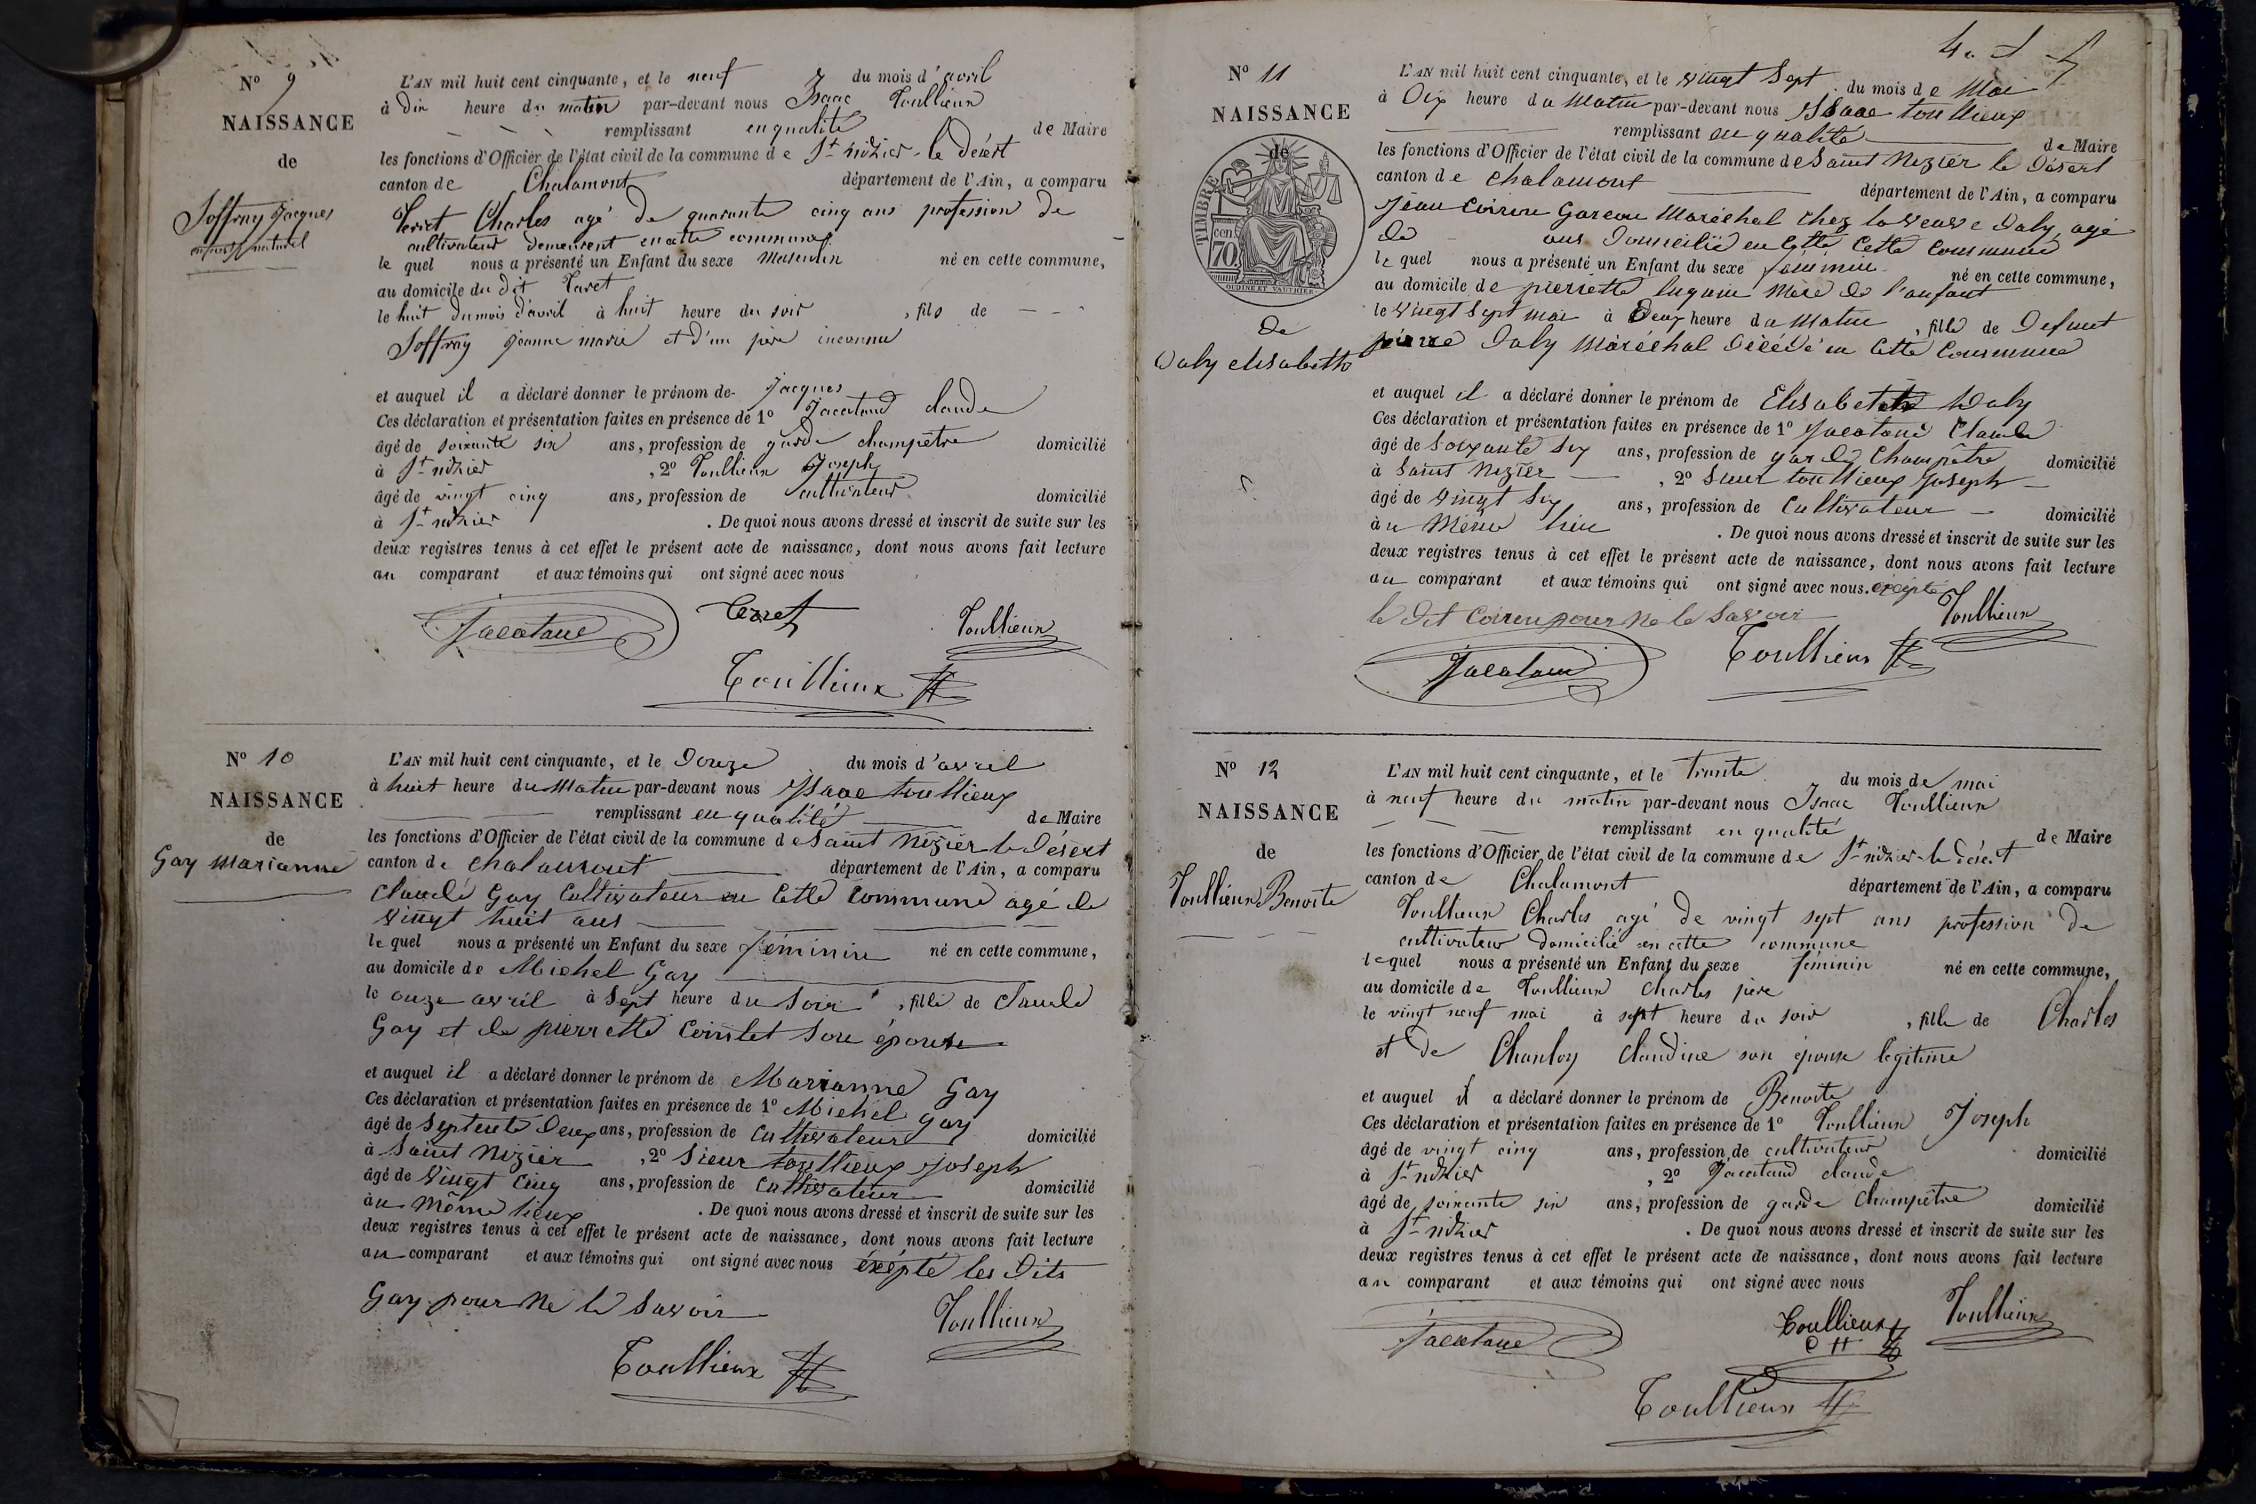 N° 9
NAISSANCE
de
Joffray Jacques
enfant naturel
L'AN mil huit cent cinquante, et le neuf du mois d'avril
à dix heure du matin par-devant nous Isaac Toullieux
remplissant en qualité de Maire
les fonctions d'Officier de l'état civil de la commune de St nizier le désert
canton de Chalamont département de l'Ain, a comparu
Charles agé de quarante cinq ans profession de
cultivateur demeurent en cette commune
le quel nous a présenté un Enfant du sexe masculin né en cette commune,
au domicile du dit
le huit du mois d'avril à huit heure du soir , fils de
Joffray jeanne marie et d'un père inconnu
et auquel il a déclaré donner le prénom de Jacques
Ces déclaration et présentation faites en présence de 1° Jacatand claude
âgé de soixante six ans, profession de garde champêtre domicilié
à St nizier , 2° Toullieux Joseph
âgé de vingt cinq ans, profession de cultivateur domicilié
à St nizier . De quoi nous avons dressé et inscrit de suite sur les
deux registres tenus à cet effet le présent acte de naissance, dont nous avons fait lecture
au comparant et aux témoins qui ont signé avec nous
Toullieux
Toullieux
N° 10
NAISSANCE
de
Gay Marianne
L'AN mil huit cent cinquante, et le Douze du mois d'avril
à huit heure du Matin par-devant nous Isaac toullieux
remplissant en qualité de Maire
les fonctions d'Officier de l'état civil de la commune de Saint Nizier le Désert
canton de Chalamont département de l'Ain, a comparu
Claude Gay Cultivateur en Cette Commune agé de
vingt huit ans
le quel nous a présenté un Enfant du sexe féminin né en cette commune,
au domicile de Michel Gay
le onze avril à Sept heure du Soir , fille de Claude
Gay et de pierrette son épouse
et auquel il a déclaré donner le prénom de Marianne Gay
Ces déclaration et présentation faites en présence de 1° Michel Gay
âgé de Septente Deux ans, profession de Cultivateur domicilié
à Saint Nizier , 2° Sieur toullieux joseph
âgé de vingt cinq ans, profession de Cultivateur domicilié
au Même lieux . De quoi nous avons dressé et inscrit de suite sur les
deux registres tenus à cet effet le présent acte de naissance, dont nous avons fait lecture
au comparant et aux témoins qui ont signé avec nous éxépté les Dits
Gay pour Ne le Savoir
Toullieux
Toullieux
N° 11
NAISSANCE
de
TIMBRE
70
OUDINE ET VAUTHIER
De
Daby elisabette
L'AN mil huit cent cinquante, et le vingt Sept du mois de Mai
à Dix heure du Matin par-devant nous Isaac toullieux
remplissant en qualité de Maire
les fonctions d'Officier de l'état civil de la commune de Saint Nizier le Désert
canton de Chalamont département de l'Ain, a comparu
Jean Garcon Maréchal Chez la veuve Daby, agé
de ans Domicilié en Cette Cette Commune
le quel nous a présenté un Enfant du sexe féminin né en cette commune,
au domicile de pierrette Mère de l'enfant
le vingt Sept mai à Deux heure du Matin , fille de Defunt
pierre Daby Maréchal Décédé en Cette Commune
et auquel il a déclaré donner le prénom de Daby
Ces déclaration et présentation faites en présence de 1° Jacatand Claude
âgé de Soixante Six ans, profession de garde Champêtre domicilié
à Saint Nizier , 2° Sieur toullieux Joseph
âgé de vingt Six ans, profession de Cultivateur domicilié
au Même lieu . De quoi nous avons dressé et inscrit de suite sur les
deux registres tenus à cet effet le présent acte de naissance, dont nous avons fait lecture
au comparant et aux témoins qui ont signé avec nous. éxépté
le Dit pour Ne le Savoir
Toullieux
Toullieux
N° 12
NAISSANCE
de
Toullieux Benoite
L'AN mil huit cent cinquante, et le Trente du mois de mai
à neuf heure du matin par-devant nous Isaac Toullieux
remplissant en qualité de Maire
les fonctions d'Officier de l'état civil de la commune de St nizier le désert
canton de Chalamont département de l'Ain, a comparu
Toullieux Charles agé de vingt sept ans profession de
cultivateur domicilié en cette commune
le quel nous a présenté un Enfant du sexe féminin né en cette commune,
au domicile de Toullieux charles père
le vingt neuf mai à sept heure du soir , fille de Charles
et de Claudine son épouse légitime
et auquel il a déclaré donner le prénom de Benoite
Ces déclaration et présentation faites en présence de 1° Toullieux Joseph
âgé de vingt cinq ans, profession de cultivateur domicilié
à St nizier , 2° Jacatand claude
âgé de soixante six ans, profession de garde Champêtre domicilié
à St nizier . De quoi nous avons dressé et inscrit de suite sur les
deux registres tenus à cet effet le présent acte de naissance, dont nous avons fait lecture
au comparant et aux témoins qui ont signé avec nous
Toullieux
Toullieux
Toullieux